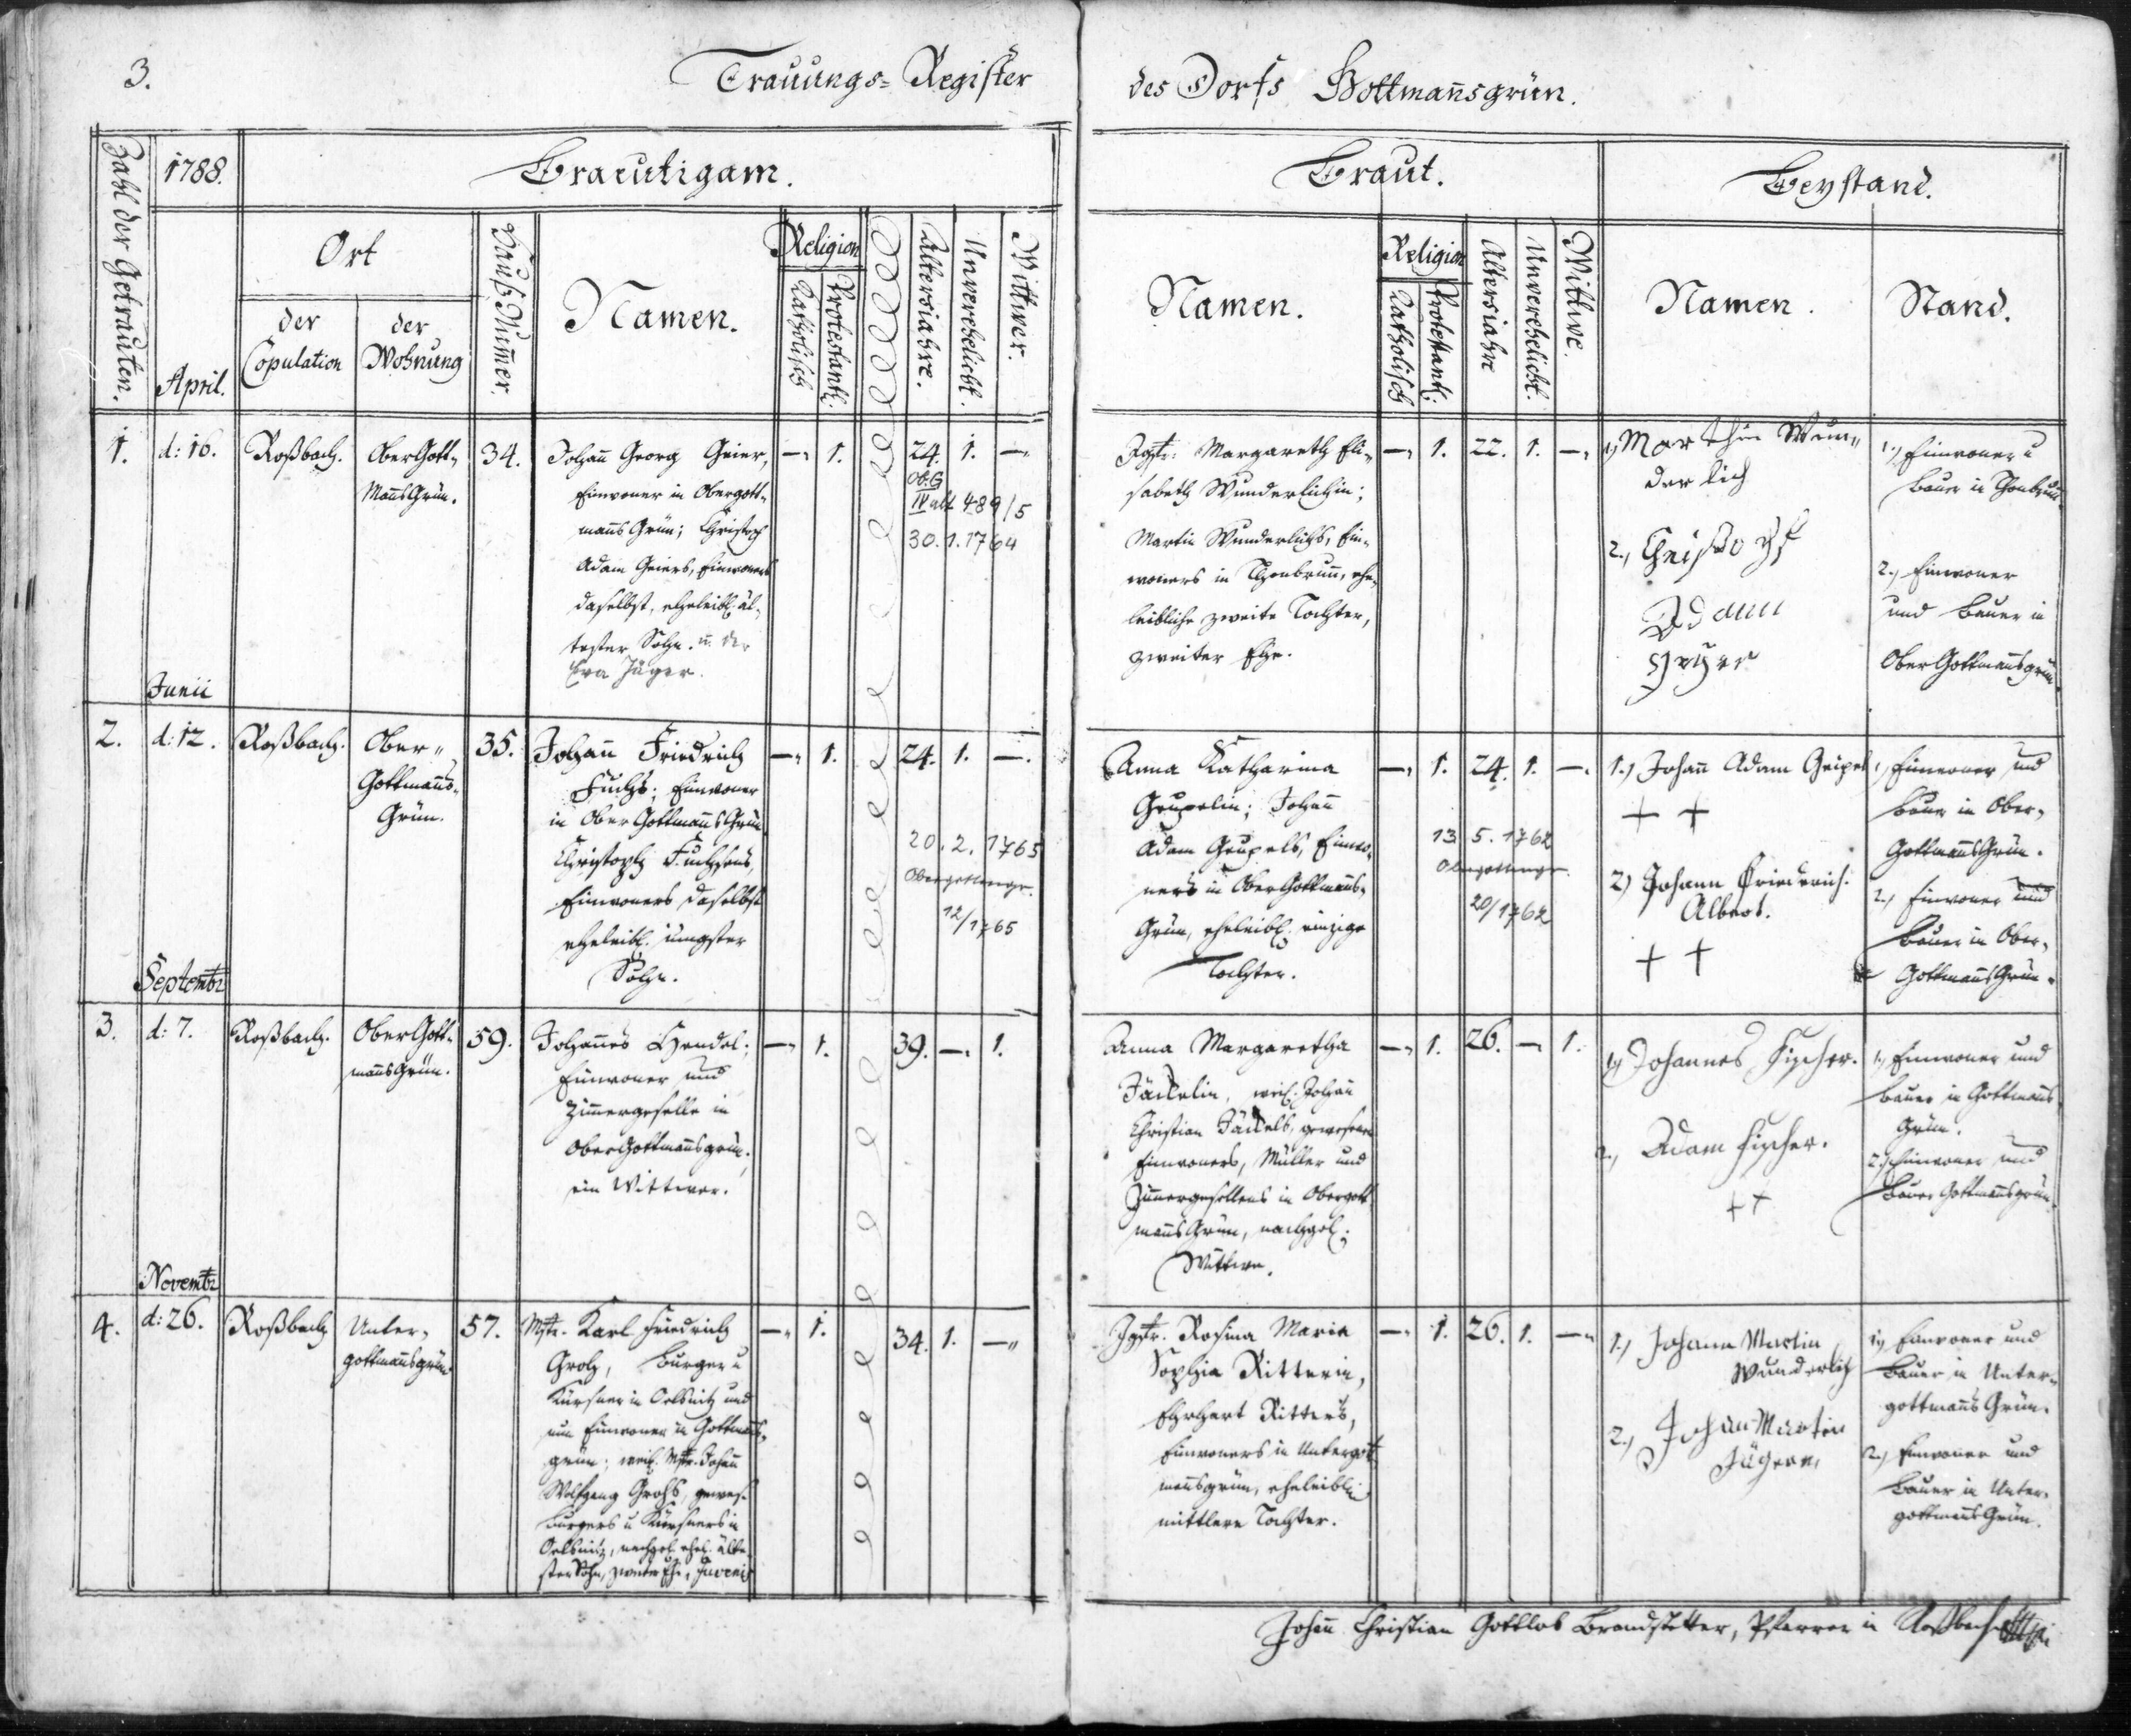 3.
Trauungs= Register
des Dorfs Gottmañsgrün.
Zahl der Getrauten.
1788.
April.
Braeutigam.
Ort
der Copulation
der Wohnung
Hauß Num̃er.
Namen.
Religion
Katholisch
Protestantl.
Altersiahre.
Unverehelicht.
Wittwer.
Braut.
Namen.
Religion
Katholisch
Protestantl.
Altersiahre
Unverehelicht.
Wittwe.
Beystand.
Namen.
Stand.
1.
d: 16.
Roßbach.
Ober Gott-
Mañs Grün.
34.
Johañ Georg Geier,
Einwoner in Obergott-
mañs Grün; Christoph
Adam Geiers, Einwoners
daselbst, eheleibl. äl-
tester Sohn. u. der
Eva Jäger.
—
1.
24.
1.
—
Ob.G
IV alt 489/5
30.1.1764
Jgfr: Margareth Eli-
sabeth Wunderlichin;
Martin Wunderlichs, Ein-
woners in Thonbruñ, ehe-
leibliche zweite Tochter,
zweiter Ehe.
—
1.
22.
1.
—
1.) Marthin Wun-
der lich
2.) Christoph
Adam
Geyer
1.) Einwoner u
Bauer in Thonbruñ.
2.) Einwoner
und Bauer in
Ober Gottmañsgrün
Junii
2.
d: 12.
Roßbach.
Ober-
Gottmañs-
Grün.
35.
Johañ Friedrich
Fuchs; Einwoner
in Ober Gottmañs Grün
Christoph Fuchsens,
Einwoners daselbst
eheleibl. jüngster
Sohn.
—
1.
24.
1.
—
20.2.1765
Obergottmgr.
12/1765
Anna Katharina
Geupelin; Johañ
Adam Geupels, Einwo-
ners in Ober Gottmañs-
Grün, eheleibl. einzige
Tochter.
—
1.
24.
1.
—
13 5. 1762
Obergottmgr.
20/1762
1.) Johañ Adam Geipel
+ +
2.) Johann Friederich
Albert.
+ +
1.) Einwoner und
Bauer in Ober-
Gottmañs Grün.
2.) Einwoner und
Bauer in Ober-
Gottmañs Grün.
Septembr
3.
d: 7.
Roßbach.
Ober Gott-
mañs Grün.
59.
Johañes Hendel;
Einwoner und
Zimmergeselle in
Ober Gottmañsgrün.
ein Wittwer.
—
1.
39.
—
1.
Anna Margaretha
Jäckelin, weil. Johañ
Christian Jäckels, gewesenen
Einwoners, Müller und
Zimmergesellens in Obergott
mañs Grün, nachgel.
Wittwe.
—
1.
26.
—
1.
1.) Johannes Fischer.
2.) Adam Fischer.
+ +
1.) Einwoner und
Bauer in Gottmañs
Grün.
2.) Einwoner und
Bauer Gottmañsgrün.
Novembr
4.
d: 26.
Roßbach
Unter-
gottmañsgrün
57.
Mstr. Karl Friedrich
Groh, Burger u
Kürsner in Oelsnitz und
nun Einwoner in Gottmañs-
grün; weil. Mstr. Johañ
Wolfgang Grohs, gewes.
Burgers u Kürsners in
Oelsnitz, nachgel. ehel. älte-
ster Sohn, zweiter Ehe, Juvenis
—
1.
34.
1.
—
Jgfr. Rosina Maria
Sophia Ritterin,
Ehrhart Ritters,
Einwoners in Untergott
mañsgrün, eheleibl.
mittlere Tochter.
—
1.
26.
1.
—
1.) Johann Martin
Wunderlich
2.) Johan Martin
Jäger
1.) Einwoner und
Bauer in Unter-
gottmañs Grün.
2.) Einwoner und
Bauer in Unter-
gottmañs Grün.
Johañ Christian Gottlob Brandstetter, Pfarrer in Roßbach